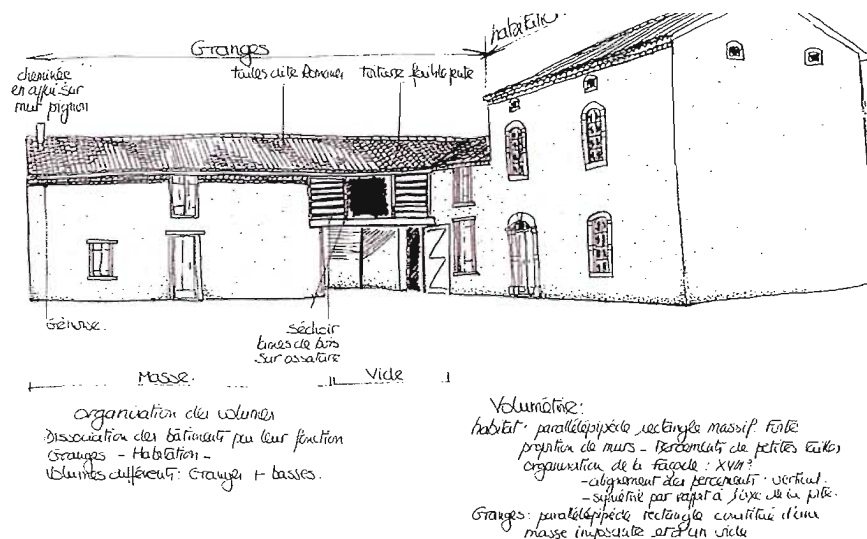 Granges
habitation
cheminée
en appui sur
mur pignon
tuiles dite Romanes
toiture faible pente
Génoise.
Séchoir
lames de bois
sur ossature
Masse. Vide
organisation des volumes
Dissociation des bâtiments par leur fonction
Granges - Habitation -
Volumes différents : Granges + basses.
Volumétrie :
habitat : parallélépipède rectangle massif. Forte
proportion de murs - Percements de petites tailles
organisation de la façade : XVIII?
- alignement des percements : vertical.
- symétrie par rapport à l'axe de la porte.
Granges : parallélépipède rectangle constitué d'une
masse imposante et d'un vide